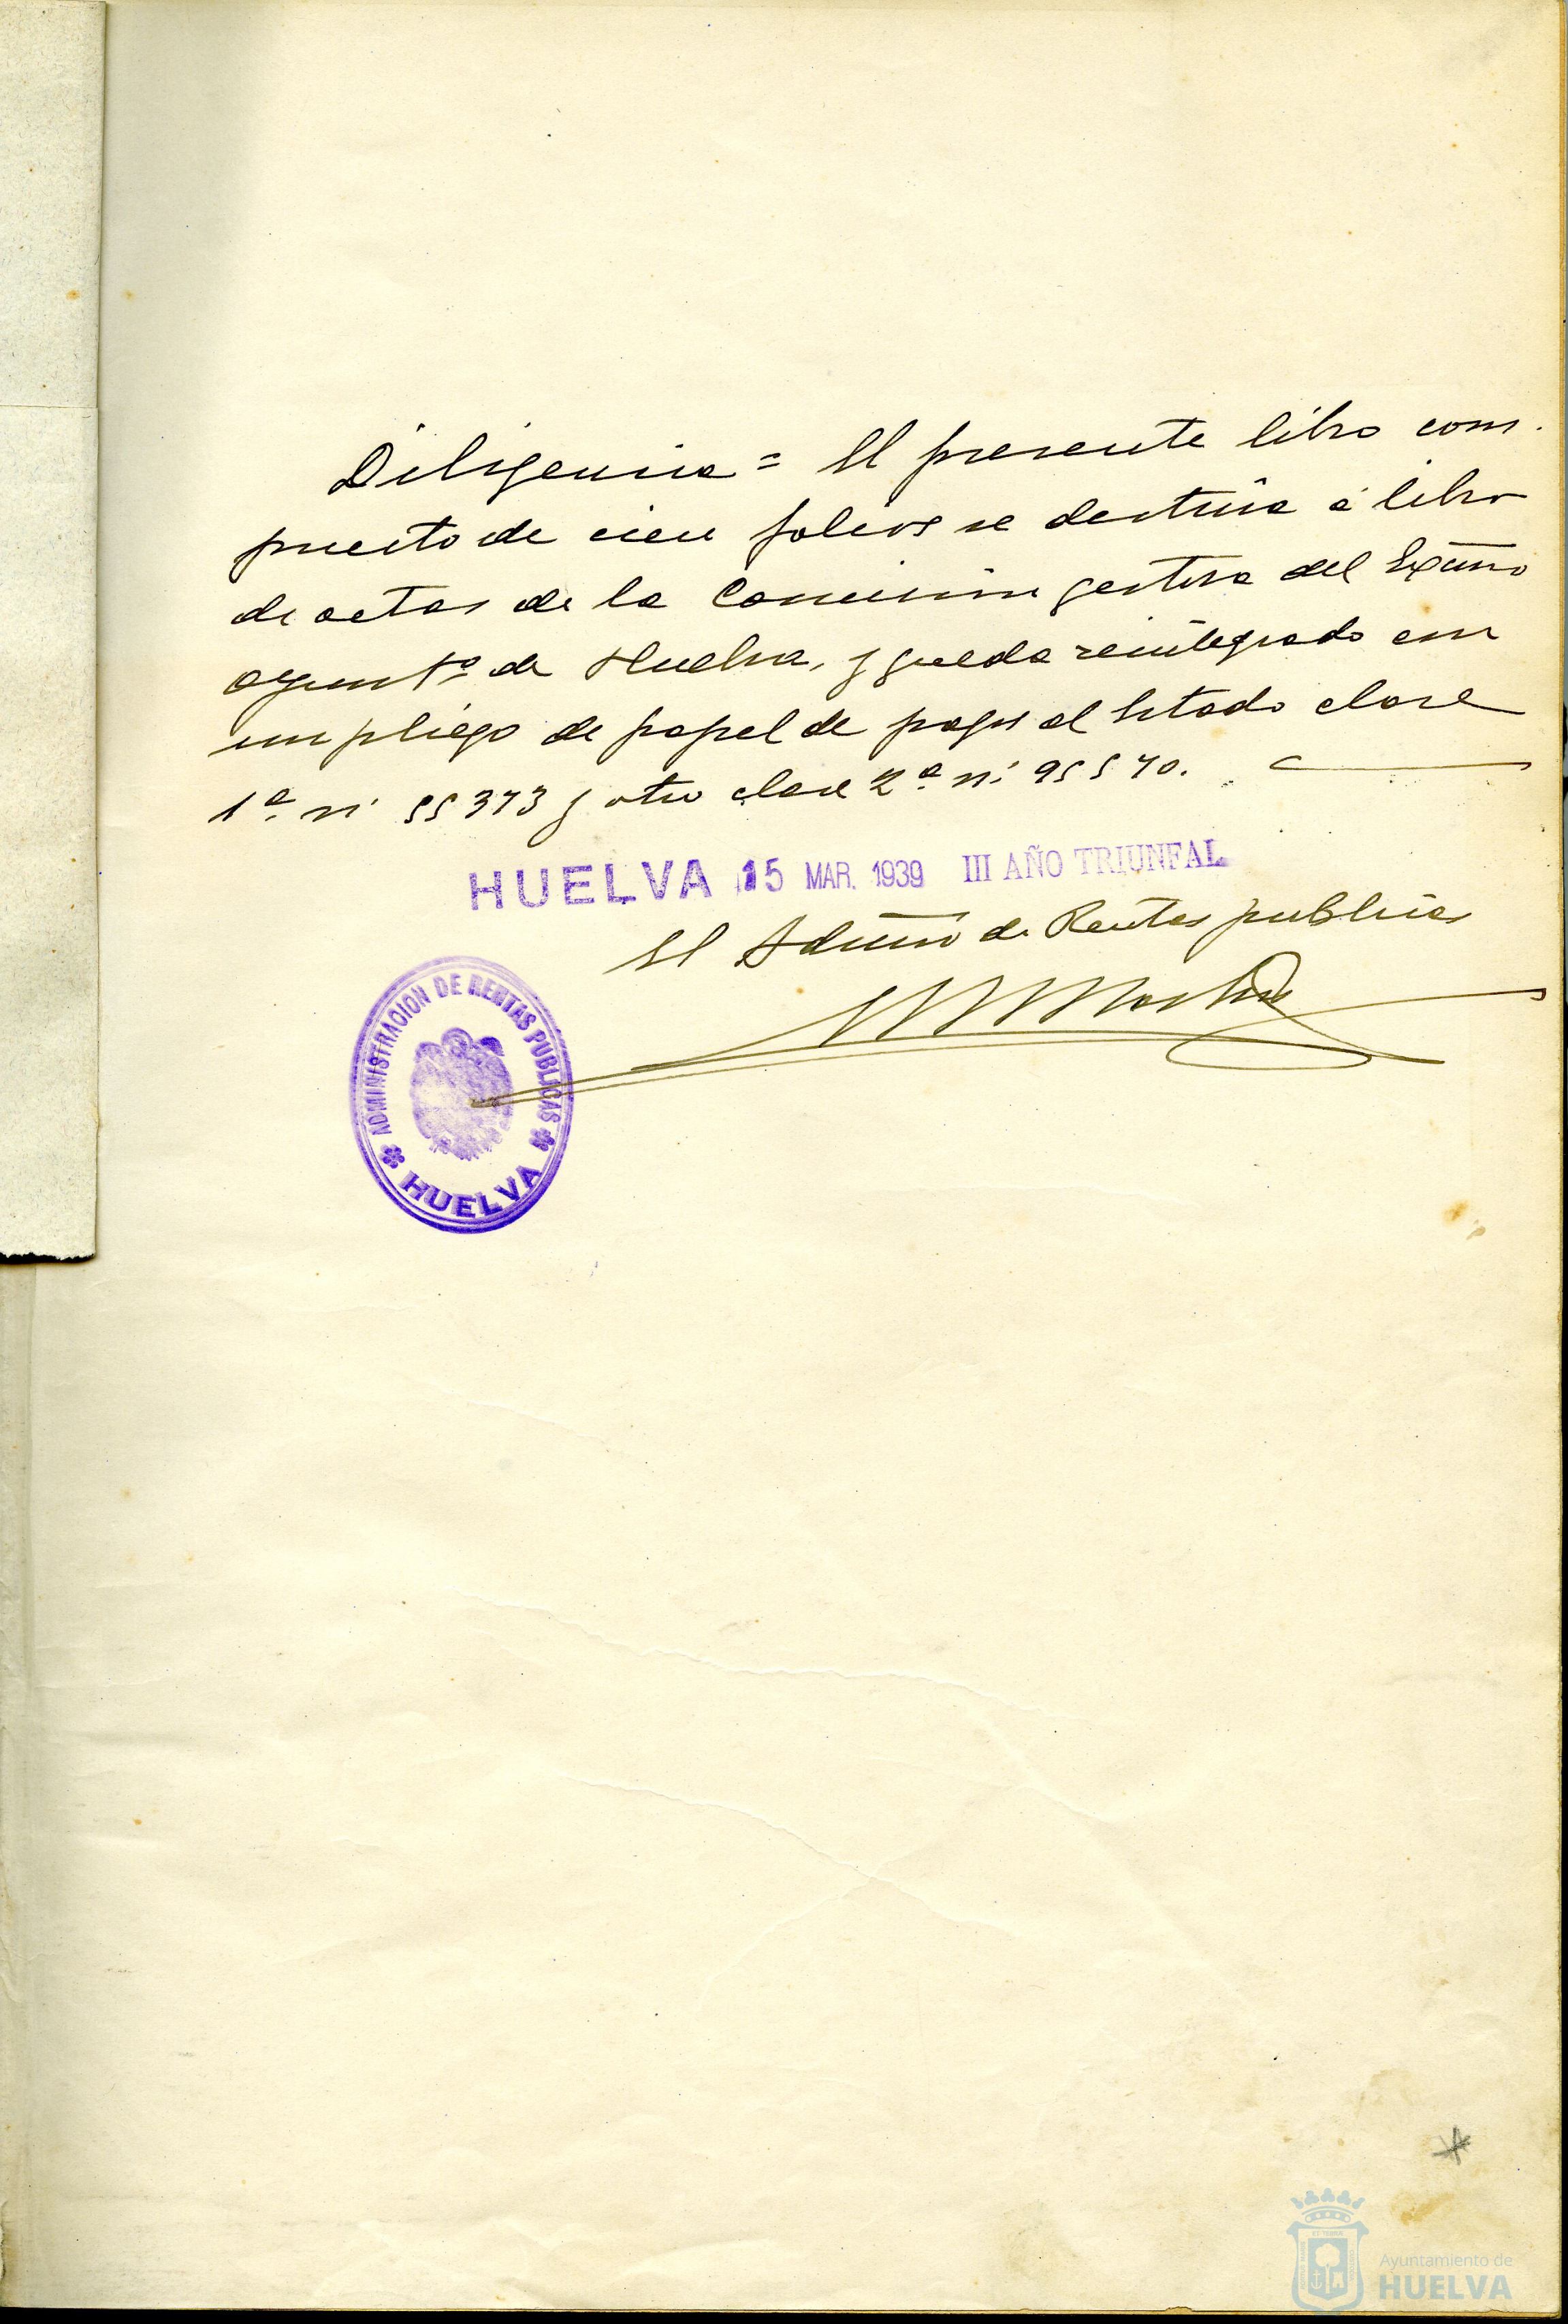 Diligencia = El presente libro com-
puesto de cien folios se destina á libro
de actas de la Comisión gestora del Excmo
ayuntº de Huelva, y queda reintegrado con
un pliego de papel de pagos al Estado clase
1ª nº 55373 y otro clase 2ª nº 95570.
HUELVA 15 MAR. 1939 III AÑO TRIUNFAL
El Admor de Rentas publicas
ADMINISTRACION DE RENTAS PUBLICAS
HUELVA
Ayuntamiento de
HUELVA